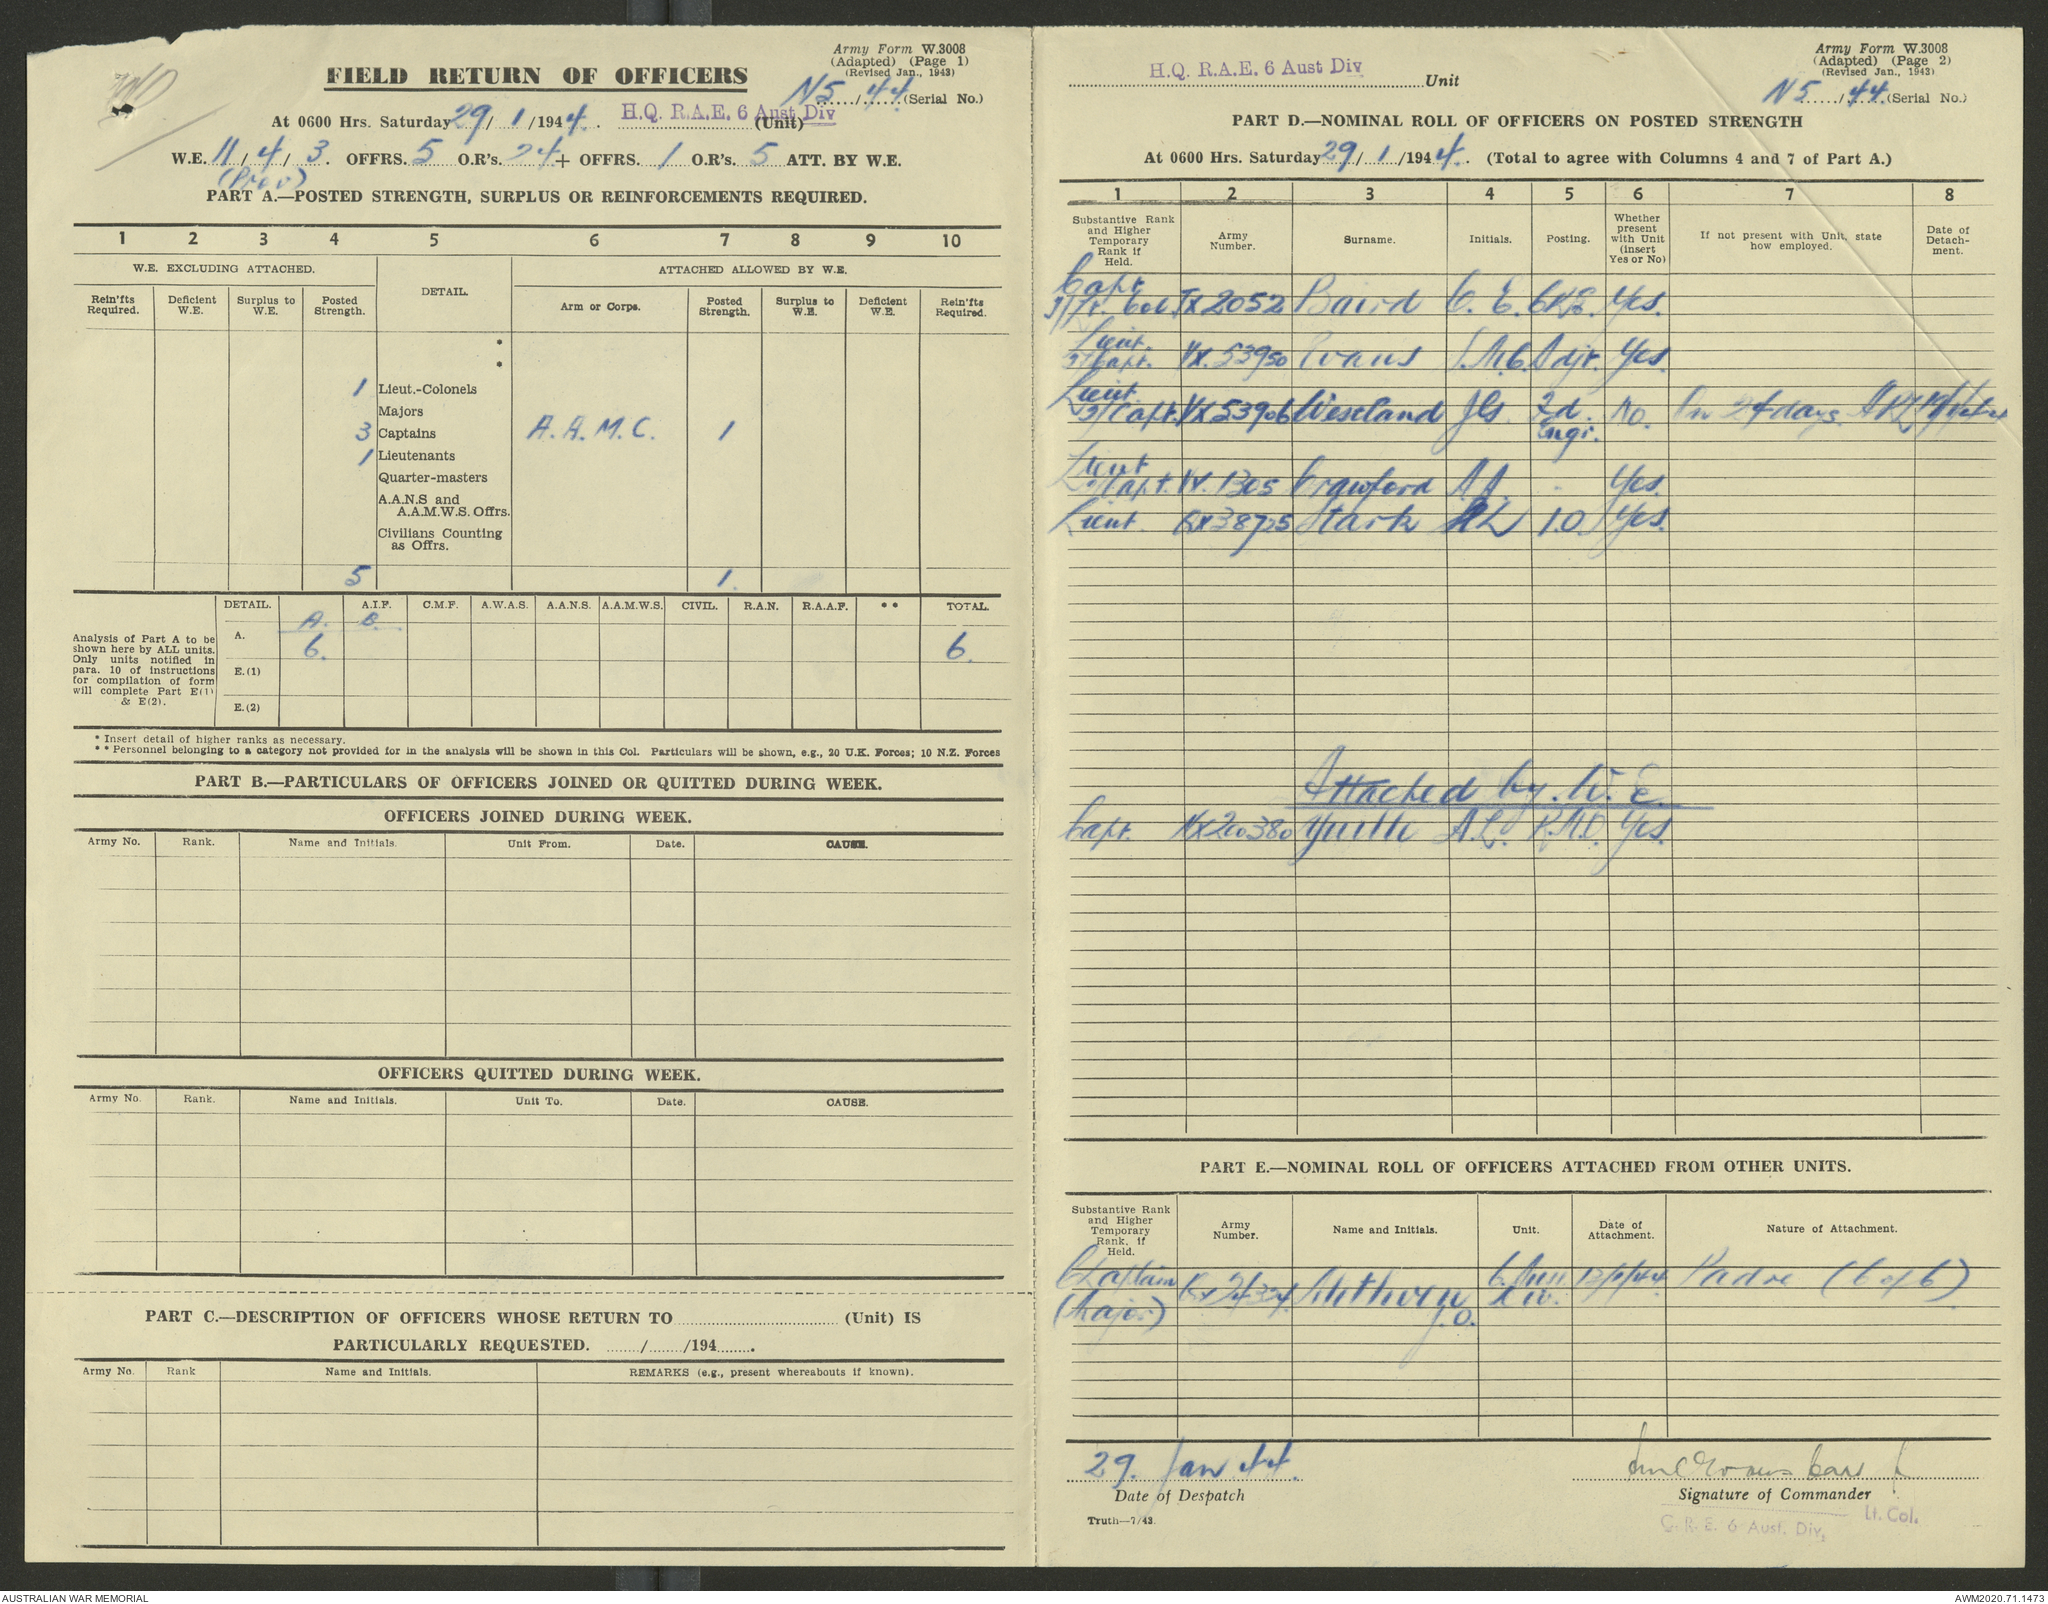 Army Form W.3008
(Adapted) (Page 1)
(Revised Jan., 1943)
FIELD RETURN OF OFFICERS
N5/44 (Serial No.)
At 0600 Hrs. Saturday 29/1/1944. H.Q. R.A.E. 6 Aust Div (Unit)
W.E. 11/4/3. OFFRS. 5 O.R's. 24 + OFFRS. 1 O.R's. 5 ATT. BY W.E.
(Prov)
PART A.—POSTED STRENGTH, SURPLUS OR REINFORCEMENTS REQUIRED.
1 2 3 4 5 6 7 8 9 10
W.E. EXCLUDING ATTACHED. DETAIL. ATTACHED ALLOWED BY W.E.
Rein'fts Required. Deficient W.E. Surplus to W.E. Posted Strength. Arm or Corps. Posted Strength. Surplus to W.E. Deficient W.E. Rein'fts Required.
*
*
1 Lieut.-Colonels
Majors
3 Captains A.A.M.C. 1
1 Lieutenants
Quarter-masters
A.A.N.S and
A.A.M.W.S. Offrs.
Civilians Counting
as Offrs.
5 1.
DETAIL. A.I.F. C.M.F. A.W.A.S. A.A.N.S. A.A.M.W.S. CIVIL. R.A.N. R.A.A.F. ** TOTAL.
A. B.
Analysis of Part A to be shown here by ALL units. Only units notified in para. 10 of instructions for compilation of form will complete Part E(1) & E(2).
A. 6. 6.
E.(1)
E.(2)
* Insert detail of higher ranks as necessary.
** Personnel belonging to a category not provided for in the analysis will be shown in this Col. Particulars will be shown, e.g., 20 U.K. Forces; 10 N.Z. Forces
PART B.—PARTICULARS OF OFFICERS JOINED OR QUITTED DURING WEEK.
OFFICERS JOINED DURING WEEK.
Army No. Rank. Name and Initials. Unit From. Date. CAUSE.
OFFICERS QUITTED DURING WEEK.
Army No. Rank. Name and Initials. Unit To. Date. CAUSE.
PART C.—DESCRIPTION OF OFFICERS WHOSE RETURN TO (Unit) IS
PARTICULARLY REQUESTED. / /194 .
Army No. Rank Name and Initials. REMARKS (e.g., present whereabouts if known).
Army Form W.3008
(Adapted) (Page 2)
(Revised Jan., 1943)
H.Q. R.A.E. 6 Aust Div Unit
N5/44 (Serial No.)
PART D.—NOMINAL ROLL OF OFFICERS ON POSTED STRENGTH
At 0600 Hrs. Saturday 29/1/1944. (Total to agree with Columns 4 and 7 of Part A.)
1 2 3 4 5 6 7 8
Substantive Rank and Higher Temporary Rank if Held. Army Number. Surname. Initials. Posting. Whether present with Unit (insert Yes or No) If not present with Unit, state how employed. Date of Detachment.
Capt.
T/Lt. Col. TX2052 Baird C.E. CRE. Yes.
Lieut.
T/Capt. VX.53950 Evans J.M.C. Adjt. Yes.
Lieut.
T/Capt. VX53906 Vestland JG. Fd. Engr. No. On 24 days.
Lieut
T/Capt. VX.1305 Crawford A.A. - Yes.
Lieut QX38725 Stark AL I.O. Yes.
Attached by. W.E.
Capt. NX200380 Yuille A.L. R.M.O. Yes.
PART E.—NOMINAL ROLL OF OFFICERS ATTACHED FROM OTHER UNITS.
Substantive Rank and Higher Temporary Rank, if Held. Army Number. Name and Initials. Unit. Date of Attachment. Nature of Attachment.
Chaplain 6. Aust 13/1/44 Padre (C of E)
(Major) Methven J.O. Div.
29. Jan 44.
Date of Despatch
Signature of Commander
Lt. Col.
C. R. E. 6 Aust. Div.
Truth—7/43.
AUSTRALIAN WAR MEMORIAL
AWM2020.71.1473